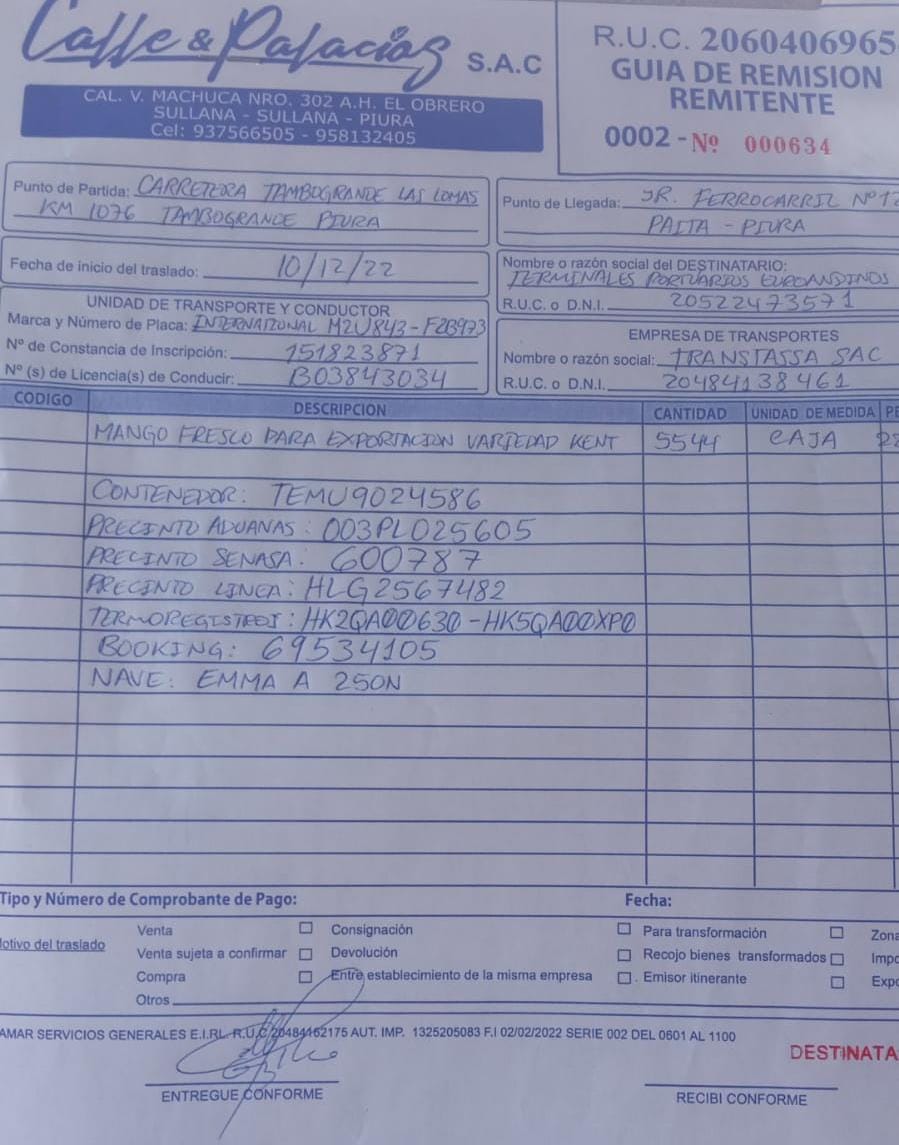 Calle & Palacios S.A.C
CAL. V. MACHUCA NRO. 302 A.H. EL OBRERO
SULLANA - SULLANA - PIURA
Cel: 937566505 - 958132405
R.U.C. 2060406965
GUIA DE REMISION
REMITENTE
0002 - Nº 000634
Punto de Partida: CARRETERA TAMBOGRANDE LAS LOMAS
KM 1076 TAMBOGRANDE PIURA
Punto de Llegada: JR. FERROCARRIL Nº
PAITA - PIURA
Fecha de inicio del traslado: 10/12/22
Nombre o razón social del DESTINATARIO:
TERMINALES PORTUARIOS EUROANDINOS
R.U.C. o D.N.I. 20522473571
UNIDAD DE TRANSPORTE Y CONDUCTOR
Marca y Número de Placa: INTERNATIONAL M2U843 - F2B973
Nº de Constancia de Inscripción: 151823871
Nº (s) de Licencia(s) de Conducir: B03843034
EMPRESA DE TRANSPORTES
Nombre o razón social: TRANSTASSA SAC
R.U.C. o D.N.I. 20484138461
CODIGO DESCRIPCIÓN CANTIDAD UNIDAD DE MEDIDA PE
MANGO FRESCO PARA EXPORTACION VARIEDAD KENT 5544 CAJA
CONTENEDOR: TEMU9024586
PRECINTO ADUANAS: 003PL025605
PRECINTO SENASA: 600787
PRECINTO LINEA: HLG2567482
HK2QA00630 - HK5QA00XP0
BOOKING: 69534105
NAVE: EMMA A 250N
Tipo y Número de Comprobante de Pago: Fecha:
otivo del traslado
Venta
Venta sujeta a confirmar
Compra
Otros
Consignación
Devolución
Entre establecimiento de la misma empresa
Para transformación
Recojo bienes transformados
Emisor itinerante
Zona
Impo
Expo
AMAR SERVICIOS GENERALES E.I.RL. R.U.C.20484162175 AUT. IMP. 1325205083 F.I 02/02/2022 SERIE 002 DEL 0601 AL 1100
DESTINATA
ENTREGUE CONFORME
RECIBI CONFORME